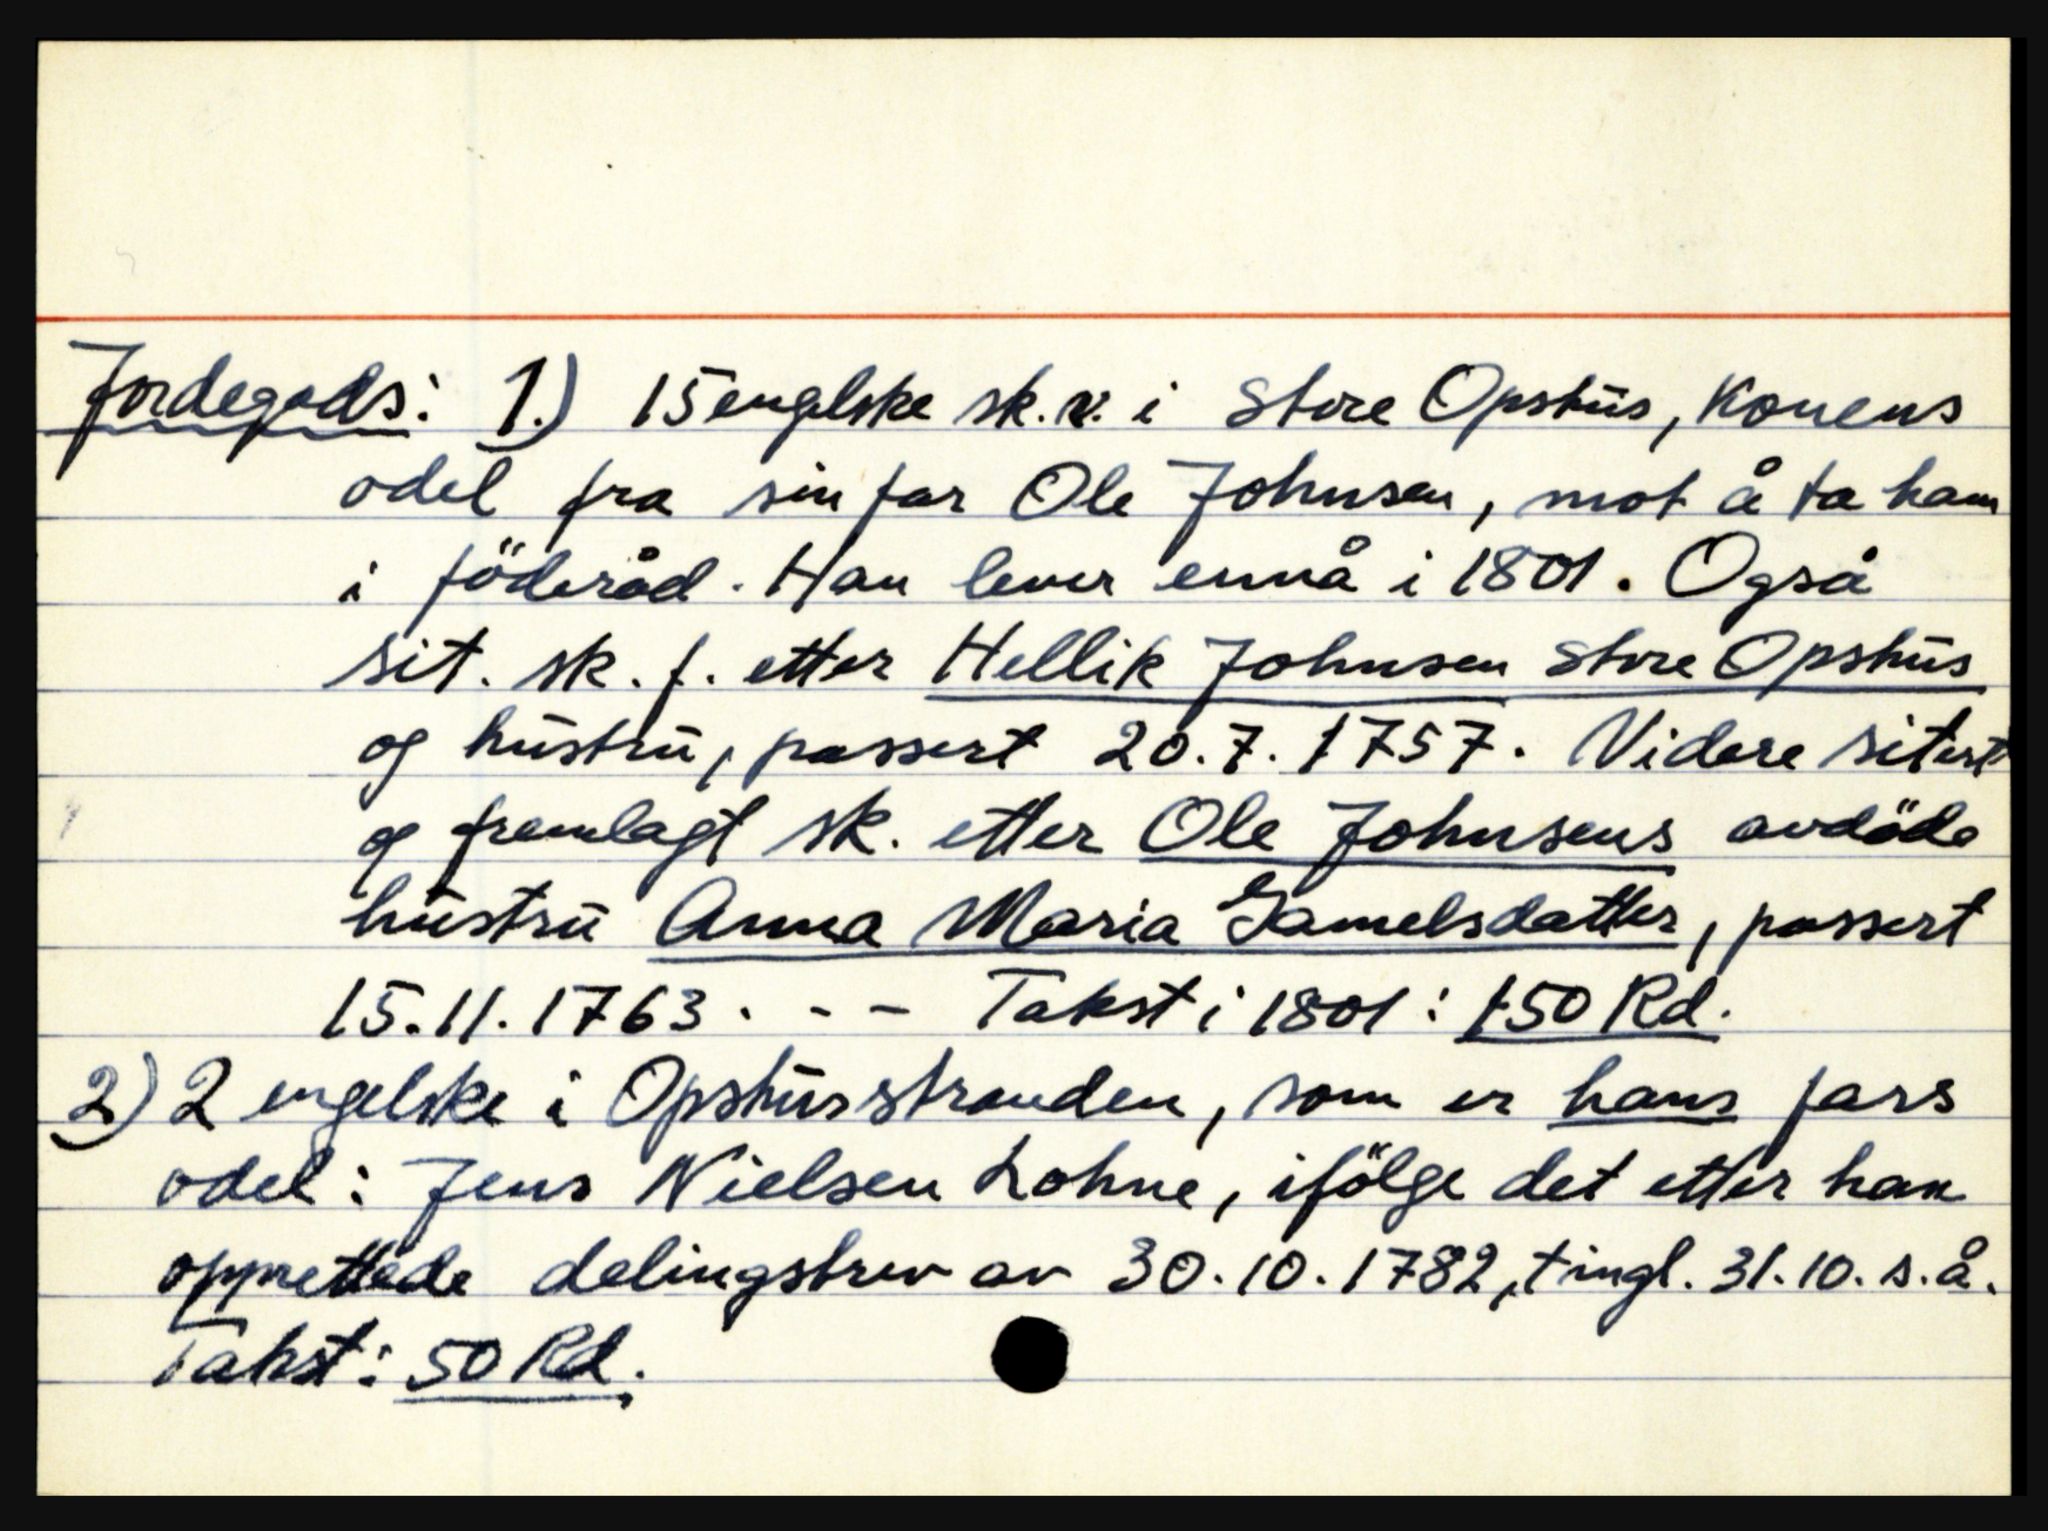 Jordegods: 1.) 15 engelske sk.v. i Store Opshus, Konens
odel fra sin far Ole Johnsen, mot å ta ham
i föderåd. Han lever ennå i 1801. Også
sit. sk. f. etter Hellik Johnsen Store Opshus
og hustru, passert 20.7.1757. Videre sitert
og fremlagt sk. etter Ole Johnsens avdöde
hustru Anna Maria Gamelsdatter, passert
15.11.1763. - - Takst i 1801: 150 Rd.
2) 2 engelske i Opshusstranden, som er hans fars
odel: Jens Nielsen Lohne, ifölge det etter ham
opprettede delingsbrev av 30.10.1782, tingl. 31.10. s.å.
Takst: 50 Rd.